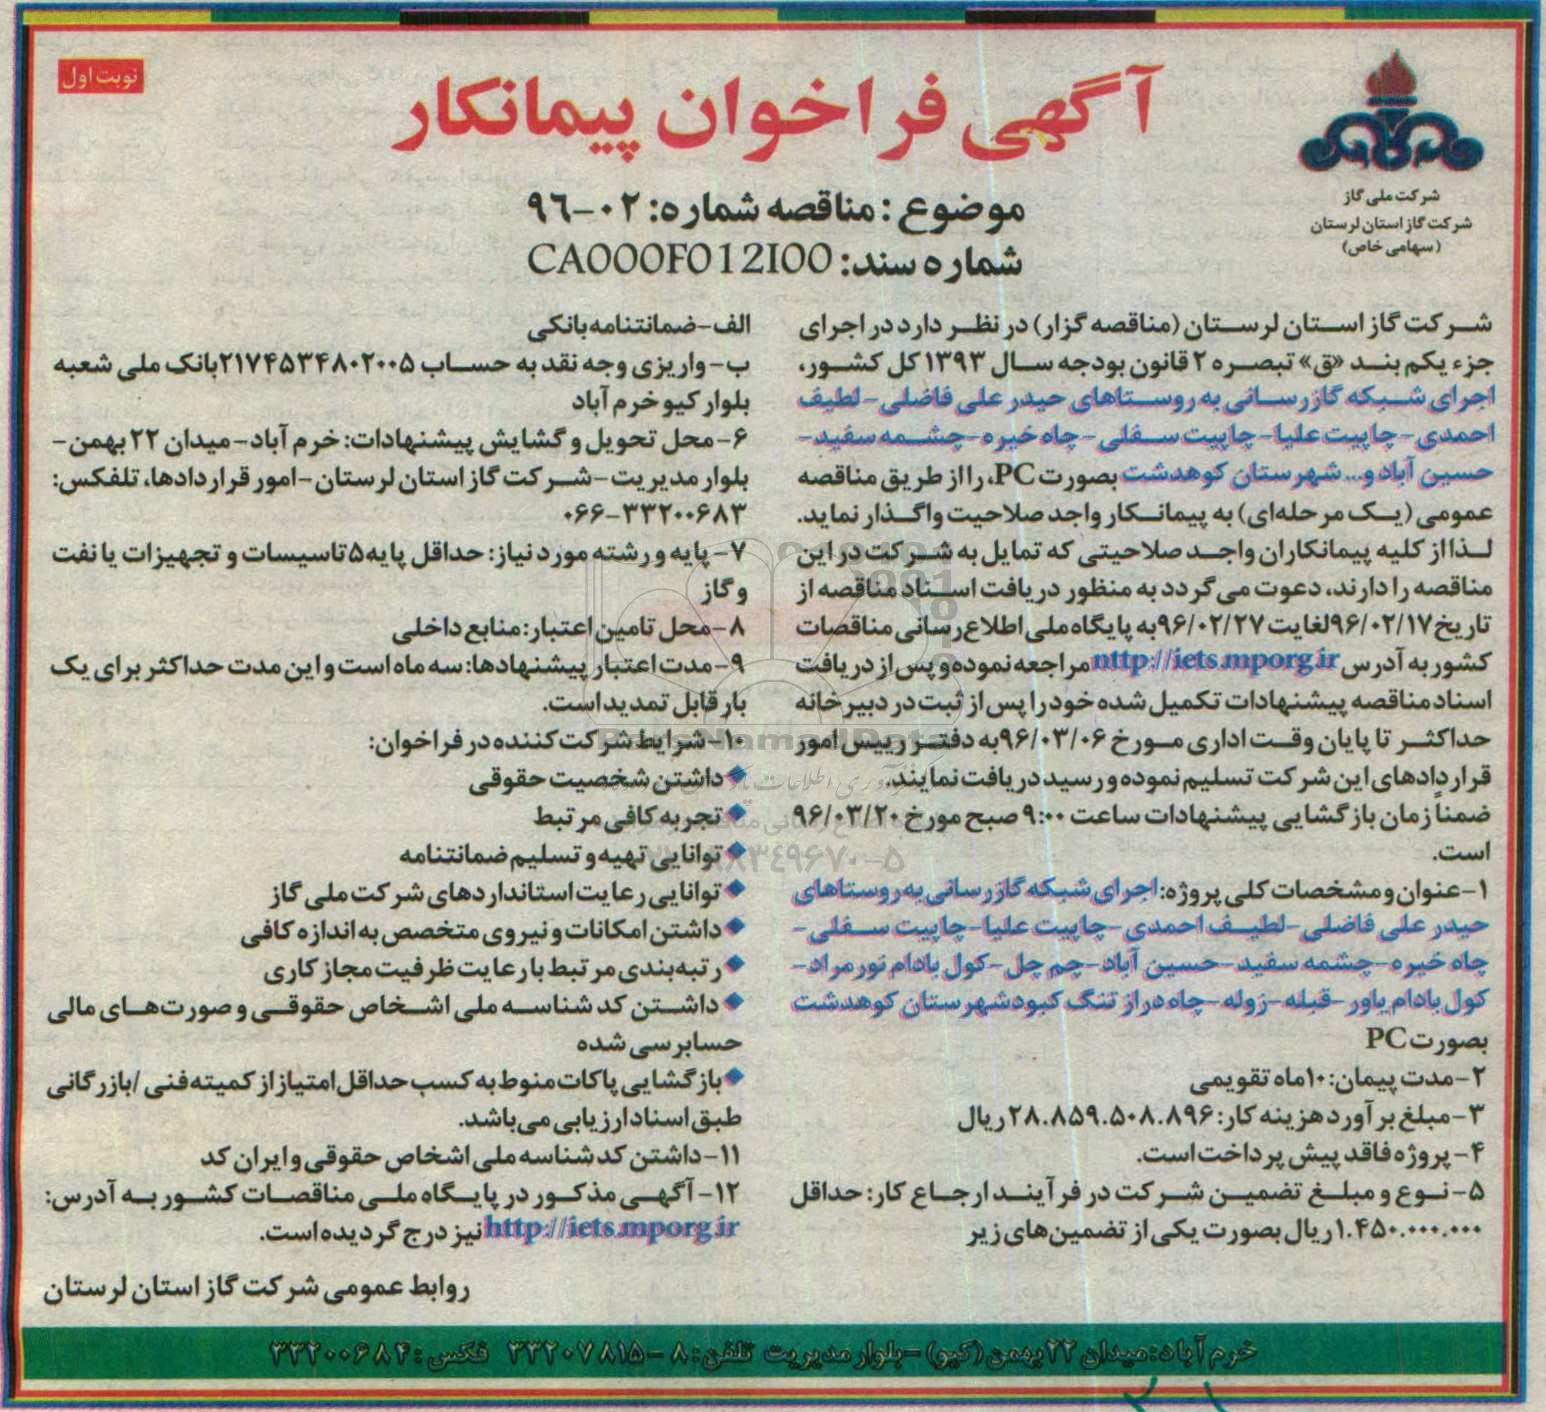 نوبت اول
آگهی فراخوان پیمانکار
شرکت ملی گاز
شرکت گاز استان لرستان
(سهامی خاص)
موضوع : مناقصه شماره: ۰۲-۹۶
شماره سند: CA000F012I00
شرکت گاز استان لرستان (مناقصه گزار) در نظر دارد در اجرای
جزء یکم بند «ق» تبصره ۲ قانون بودجه سال ۱۳۹۳ کل کشور،
اجرای شبکه گازرسانی به روستاهای حیدر علی فاضلی - لطیف
احمدی - چاپیت علیا - چاپیت سفلی - چاه خیره - چشمه سفید -
حسین آباد و... شهرستان کوهدشت بصورت PC، را از طریق مناقصه
عمومی (یک مرحله‌ای) به پیمانکار واجد صلاحیت واگذار نماید.
لذا از کلیه پیمانکاران واجد صلاحیتی که تمایل به شرکت در این
مناقصه را دارند، دعوت می‌گردد به منظور دریافت اسناد مناقصه از
تاریخ ۹۶/۰۲/۱۷ لغایت ۹۶/۰۲/۲۷ به پایگاه ملی اطلاع رسانی مناقصات
کشور به آدرس http://iets.mporg.ir مراجعه نموده و پس از دریافت
اسناد مناقصه پیشنهادات تکمیل شده خود را پس از ثبت در دبیرخانه
حداکثر تا پایان وقت اداری مورخ ۹۶/۰۳/۰۶ به دفتر رییس امور
قراردادهای این شرکت تسلیم نموده و رسید دریافت نمایند.
ضمناً زمان بازگشایی پیشنهادات ساعت ۹:۰۰ صبح مورخ ۹۶/۰۳/۲۰
است.
۱- عنوان و مشخصات کلی پروژه: اجرای شبکه گازرسانی به روستاهای
حیدر علی فاضلی - لطیف احمدی - چاپیت علیا - چاپیت سفلی -
چاه خیره - چشمه سفید - حسین آباد - چم چل - کول بادام نورمراد -
کول بادام یاور - قبله - زوله - چاه دراز تنگ کبود شهرستان کوهدشت
بصورت PC
۲- مدت پیمان: ۱۰ ماه تقویمی
۳- مبلغ برآورد هزینه کار: ۲۸.۸۵۹.۵۰۸.۸۹۶ ریال
۴- پروژه فاقد پیش پرداخت است.
۵- نوع و مبلغ تضمین شرکت در فرآیند ارجاع کار: حداقل
۱.۴۵۰.۰۰۰.۰۰۰ ریال بصورت یکی از تضمین‌های زیر
الف- ضمانتنامه بانکی
ب- واریزی وجه نقد به حساب ۲۱۷۴۵۳۴۸۰۲۰۰۵ بانک ملی شعبه
بلوار کیو خرم آباد
۶- محل تحویل و گشایش پیشنهادات: خرم آباد - میدان ۲۲ بهمن -
بلوار مدیریت - شرکت گاز استان لرستان - امور قراردادها، تلفکس:
۰۶۶-۳۳۲۰۰۶۸۳
۷- پایه و رشته مورد نیاز: حداقل پایه ۵ تاسیسات و تجهیزات یا نفت
و گاز
۸- محل تامین اعتبار: منابع داخلی
۹- مدت اعتبار پیشنهادها: سه ماه است و این مدت حداکثر برای یک
بار قابل تمدید است.
۱۰- شرایط شرکت کننده در فراخوان:
◆ داشتن شخصیت حقوقی
◆ تجربه کافی مرتبط
◆ توانایی تهیه و تسلیم ضمانتنامه
◆ توانایی رعایت استانداردهای شرکت ملی گاز
◆ داشتن امکانات و نیروی متخصص به اندازه کافی
◆ رتبه‌بندی مرتبط با رعایت ظرفیت مجاز کاری
◆ داشتن کد شناسه ملی اشخاص حقوقی و صورت‌های مالی
حسابرسی شده
◆ بازگشایی پاکات منوط به کسب حداقل امتیاز از کمیته فنی / بازرگانی
طبق اسناد ارزیابی می‌باشد.
۱۱- داشتن کد شناسه ملی اشخاص حقوقی و ایران کد
۱۲- آگهی مذکور در پایگاه ملی مناقصات کشور به آدرس:
http://iets.mporg.ir نیز درج گردیده است.
روابط عمومی شرکت گاز استان لرستان
خرم آباد: میدان ۲۲ بهمن (کیو) - بلوار مدیریت تلفن: ۸ - ۳۳۲۰۷۸۱۵ فکس: ۳۳۲۰۰۶۸۴